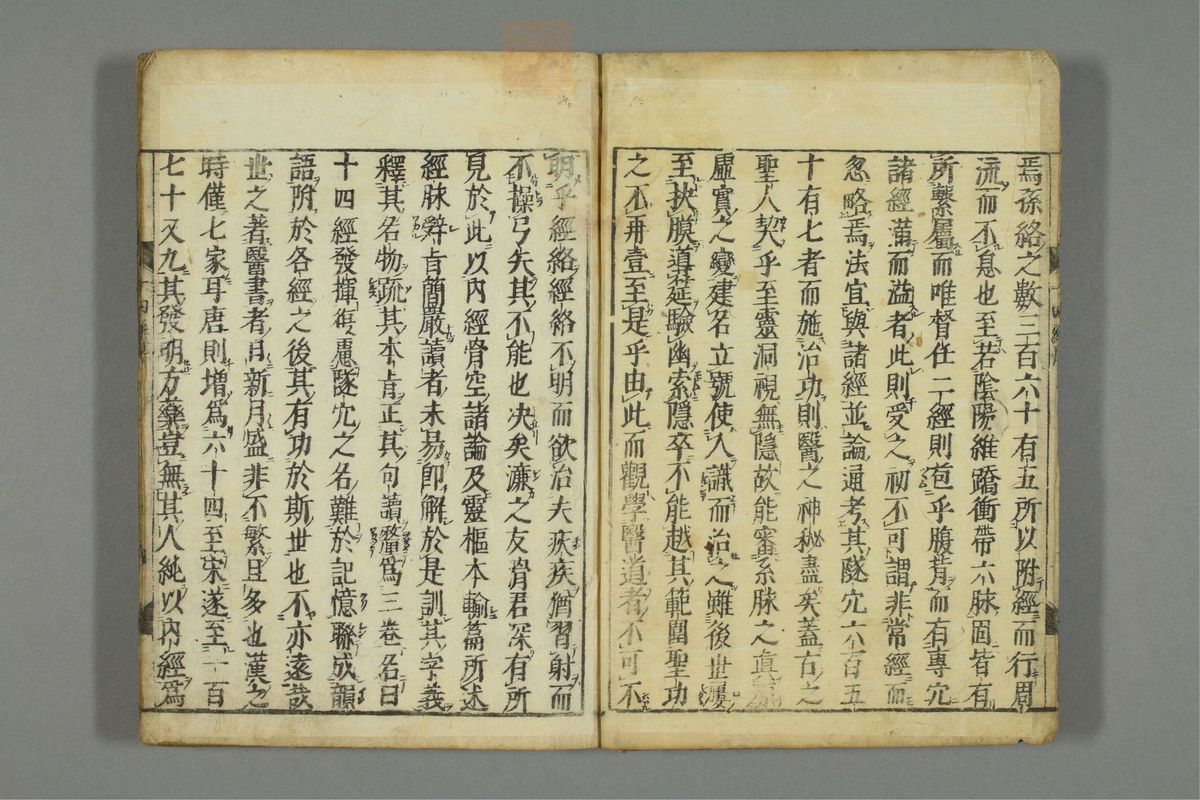 焉孫絡之數三百六十有五所以附經而行周
流而不息也至若陰陽維蹻衝帶六脉固皆有
所繫屬而唯督任二經則苞乎腹背而有專穴
諸經滿而溢者此則受之初不可謂非常經而
忽略焉法宜與諸經並論通考其隧穴六百五
十有七者而施治功則醫之神秘盡矣蓋古之
聖人契乎至靈洞視無隱故能審系脉之真
虛實之變建名立號使人識而治之雖後世屢
至抉膜導筵驗幽索隱卒不能越其範圍聖功
之不再壹至是乎由此而觀學醫道者不可不
明乎經絡經絡不明而欲治夫疾疢猶習射而
不操弓矢其不能也决矣濂之友滑君深有所
見於此以內經骨空諸論及靈樞本輸篇所述
經脉辭旨簡嚴讀者未易即解於是訓其字義
釋其名物疏其本旨正其句讀釐爲三卷名曰
十四經發揮復慮隧穴之名難於記憶聯成韻
語附於各經之後其有功於斯世也不亦遠哉
世之著醫書者日新月盛非不繁且多也漢之
時僅七家耳唐則增爲六十四至宋遂至一百
七十又九其發明方藥豈無其人純以內經爲